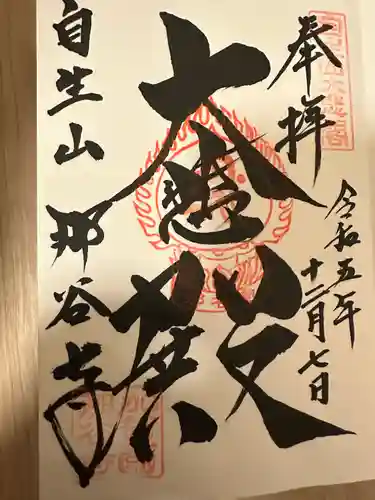 奉拝
令和五年十二月七日
大悲殿
自生山那谷寺